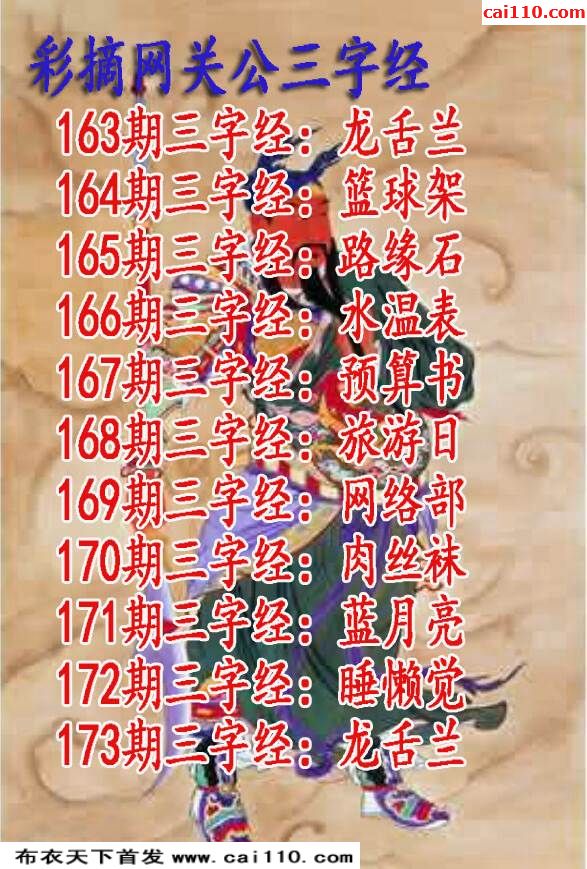 cai110.com
彩摘网关公三字经
163期三字经：龙舌兰
164期三字经：篮球架
165期三字经：路缘石
166期三字经：水温表
167期三字经：预算书
168期三字经：旅游日
169期三字经：网络部
170期三字经：肉丝袜
171期三字经：蓝月亮
172期三字经：睡懒觉
173期三字经：龙舌兰
布衣天下首发 www.cai110.com